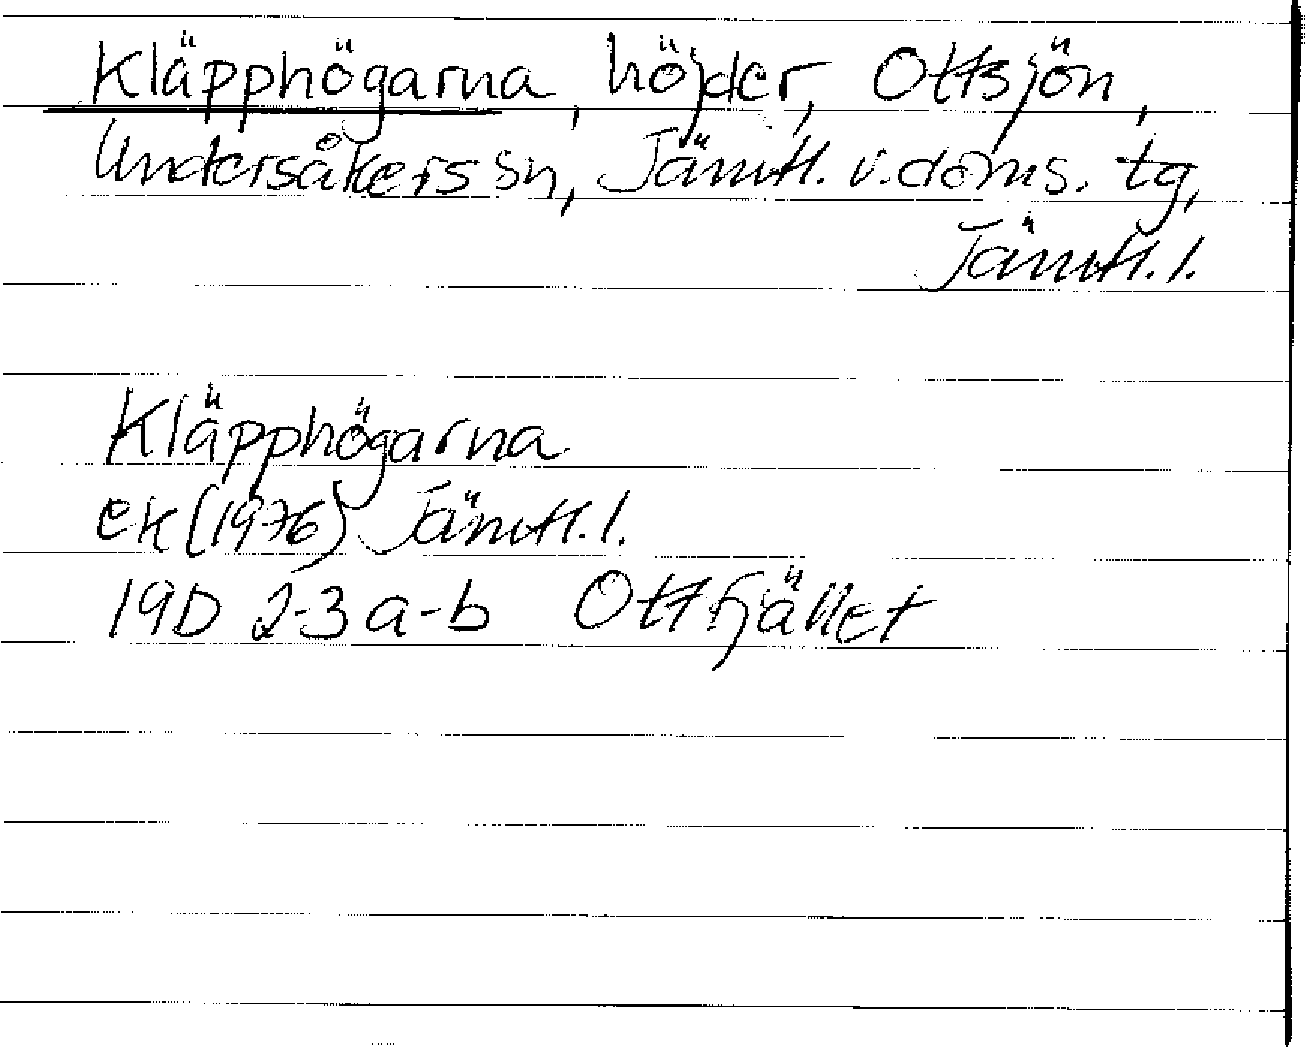 Kläpphögarna, höjder, Ottsjön,
Undersåkers sn, Jämtl. v. doms. tg,
Jämtl. l.
Kläpphögarna
ek (1976) Jämtl. l.
19D 2-3 a-b Ottfjället